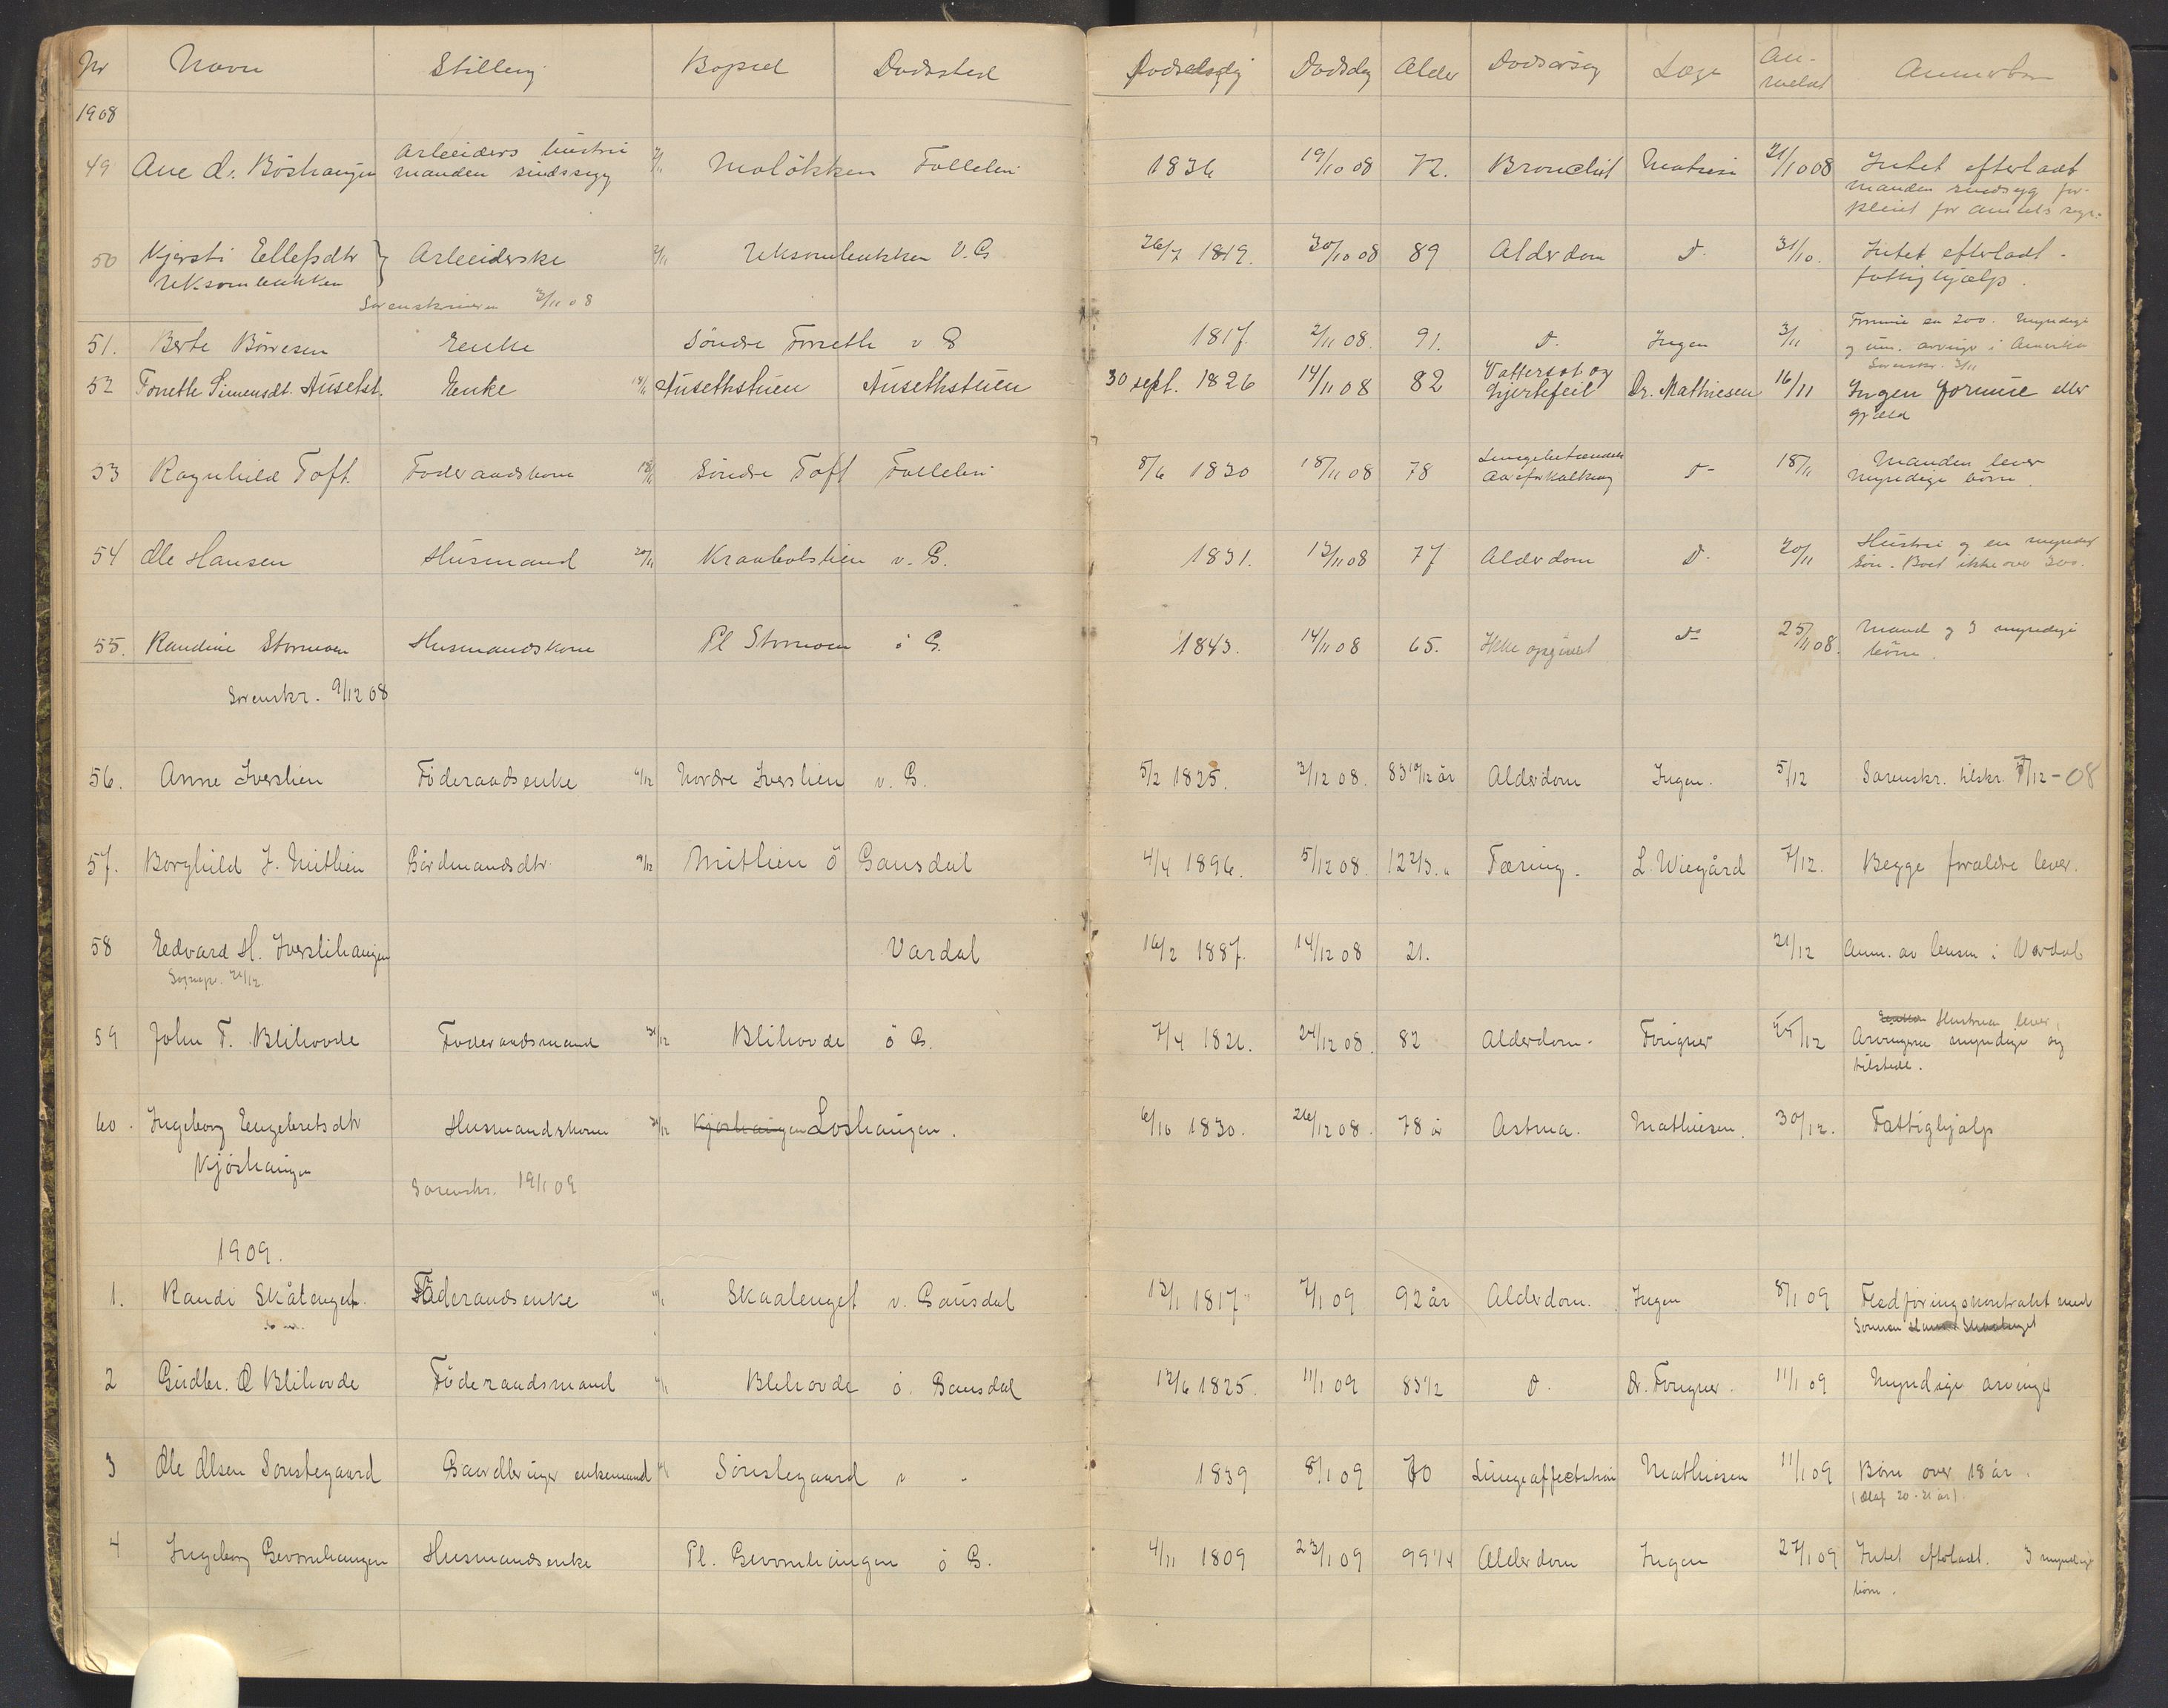 Nr Navn Stilling Bopæl Dødssted Fødselsdag Dødsdag Alder Dødsårsag Læge An-meldt Anmerkn
1908
49 Ane d. Böshaugen Arbeiders hustru manden sindssyg Moløkken Follebu 1836 19/10 08 72. Bronchit 21/10 08 Intet efterladt
manden sindsyg for-
pleiet for amtets regn.
50 Kjersti Ellefsdtr Arbeiderske V. G. 26/7 1819. 30/10 08 89 Alderdom D. 31/10. Intet efterladt.
fattighjælp.
Sorenskriveren 3/11 08
51. Berte Börresen Enke Söndre Forseth v G 1817. 2/11 08. 91. D. Ingen 3/11 Formue ca 200. Myndige
og um. arvinger i Amerika
Sorenskr. 3/11
52 Simensdt. Ausethst. Enke 14/11 Ausethstuen Ausethstuen 30 sept. 1826 14/11 08 82 Vattersot og Hjertefeil Dr. Mathiesen 16/11 Ingen formue eller
gjæld
53 Ragnhild Toft. Föderaadskone 18/11 Söndre Toft Follebu 8/6 1830 18/11 08 78 Lungebetændelse Aareforkalkning D 18/11 Manden lever
Myndige börn.
54 Ole Hansen Husmand 20/11 Kraabölstuen v. G. 1831. 13/11 08 77 Alderdom D. 20/11 Hustru og en myndig
Sön. Boet ikke over 300.
55. Randine Stormoen Husmandskone Pl Stormoen ö G. 1843. 14/11 08 65. Ikke opgivet D 25/11 08. Mand og 3 myndige
börn.
Sorenskr. 9/12 08
56. Anne Iverslien Föderaadsenke Nordre Iverslien v. G. 5/2 1825. 3/12 08. 83 10/12 år Alderdom Ingen. 5/12 Sorenskr. tilskr. 9/12-08
57. Borghild J. Mitlien Gårdmandsdtr. 9/12 Mitlien ö Gausdal 4/4 1896. 5/12 08. 12 2/3. " Tæring. L. Wiegård 7/12. Begge forældre lever.
58 Edvard H. Iverslihaugen Vardal 16/2 1887. 14/12 08 21. 21/12 Anm. av lensm i Vardal
Sognepr. 21/12.
59 John T. Blihovde Föderaadsmand Blihovde ö G. 7/4 1826. 24/12 08. 82 Alderdom. Fougner 25/12 Hustruen lever,
Arvingerne myndige og
tilstede.
60. Ingeborg Engebretsdtr Husmandskone Kjöshaugen Loshaugen. 6/10 1830. 26/12 08. 78 år Astma. Mathiesen. 30/12. Fattighjælp
Kjöshaugen
Sorenskr. 19/1 09
1909.
1. Randi Skålenget. Föderaadsenke Skaalenget v. Gausdal 13/1 1817 7/1 09 92 år Alderdom. Ingen 8/1 09 Flodföringskontrakt med
Sönnen
2 Gudbr. O Blihovde Föderaadsmand Blihovde ö. Gausdal 12/6 1825. 11/1 09 83 1/2 D. Dr. Fougner. 11/1 09 Myndige arvinger
3 Ole Olsen Sönstegaard Gaardbruger enkemand Sönstegaard v - 1839 8/1 09 70 Lungeaffektion Mathiesen 11/1 09 Börn over 18 år.
(Olaf 20-21 år).
4 Ingeborg Gevornhaugen Husmandsenke Pl. Gevornhaugen ö G. 4/11 1809 23/1 09 99 1/4 Alderdom Ingen 27/1 09 Intet efterladt. 3 myndige
börn.